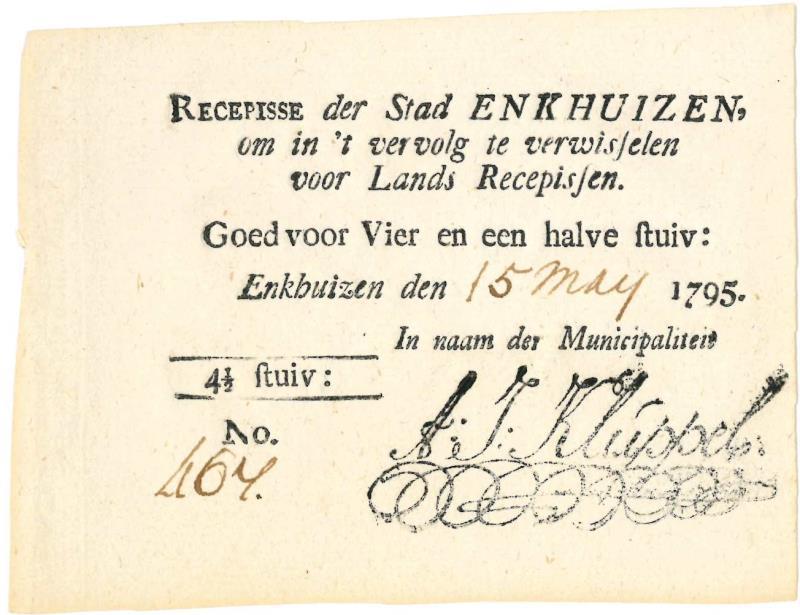 RECEPISSE der Stad ENKHUIZEN,
om in 't vervolg te verwisſelen
voor Lands Recepisſen.
Goed voor Vier en een halve ſtuiv:
Enkhuizen den 15 May 1795.
In naam der Municipaliteit
4½ ſtuiv:
No.
467.
A: J: Kluppel: